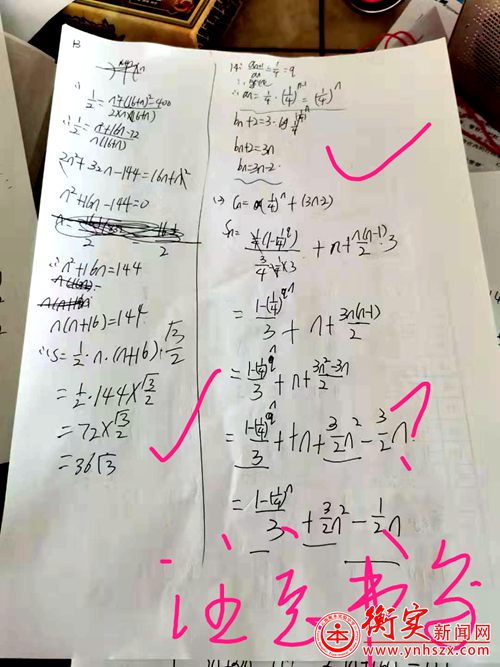 13
∴ 1/2 = n²+(16+n)²-400 / 2×n(16+n)
∴ 1/2 = n²+16n-72 / n(16+n)
2n²+32n-144=16n+n²
n²+16n-144=0
∴ n²+16n=144
n(n+16)=144
∴ S=1/2·n·(n+16)·√3/2
=1/2·144×√3/2
=72×√3/2
=36√3
14: an+1/an=1/4=q
∴ an=1/4·(1/4)^n-1=(1/4)^n
bn+2=3
bn+2=3n
bn=3n-2
(2) Cn=(1/4)^n+(3n-2)
Sn= + n+n(n-1)/2·3
=1-(1/4)^n/3+n+3n(n-1)/2
=1-(1/4)^n/3+n+3n²-3n/2
=1-(1/4)^n/3+n+3/2n²-3/2n
?
=1-(1/4)^n/3+3/2n²-1/2n
注意书写
衡实新闻网
www.ynhszx.com